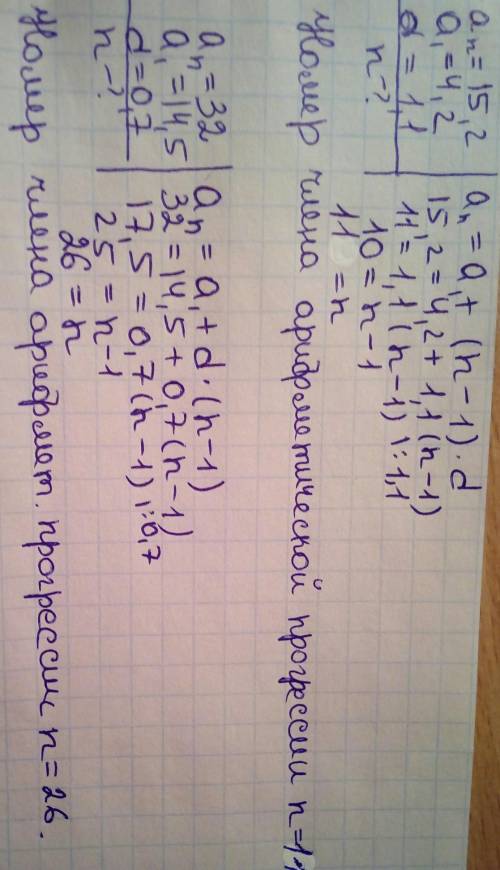 aₙ = 15,2 | aₙ = a₁ + (n − 1) · d
a₁ = 4,2 | 15,2 = 4,2 + 1,1 (n − 1)
d = 1,1 | 11 = 1,1 (n − 1) | : 1,1
n − ? | 10 = n − 1
11 = n
Номер члена арифметической прогрессии n = 11
aₙ = 32 | aₙ = a₁ + d · (n − 1)
a₁ = 14,5 | 32 = 14,5 + 0,7 (n − 1)
d = 0,7 | 17,5 = 0,7 (n − 1) | : 0,7
n − ? | 25 = n − 1
26 = n
Номер члена арифмет. прогрессии n = 26.